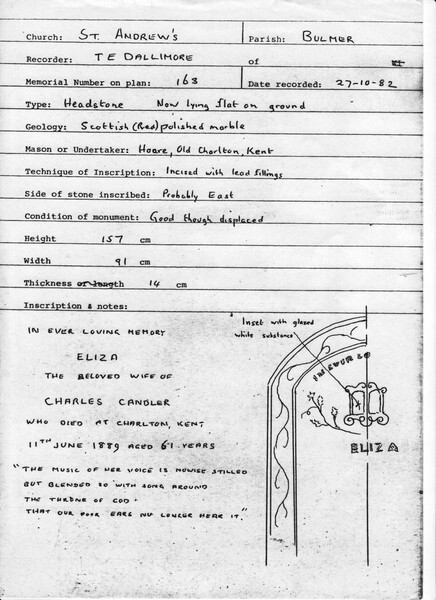 Church: ST. ANDREW'S Parish: BULMER
Recorder: T E DALLIMORE of
Memorial Number on plan: 168 Date recorded: 27-10-82
Type: Headstone Now lying flat on ground
Geology: Scottish (Red) polished marble
Mason or Undertaker: Hoare, Old Charlton, Kent
Technique of Inscription: Incised with lead fillings
Side of stone inscribed: Probably East
Condition of monument: Good though displaced
Height 157 cm
Width 91 cm
Thickness or length 14 cm
Inscription & notes:
Inset with glazed
white substance
IN EVER LOVING MEMORY
ELIZA
THE BELOVED WIFE OF
CHARLES CANDLER
WHO DIED AT CHARLTON, KENT
11TH JUNE 1889 AGED 61 YEARS
"THE MUSIC OF HER VOICE IS NOWISE STILLED
BUT BLENDED SO WITH SONG AROUND
THE THRONE OF GOD.
THAT OUR POOR EARS NO LONGER HEAR IT."
IN EVER LO
ELIZA